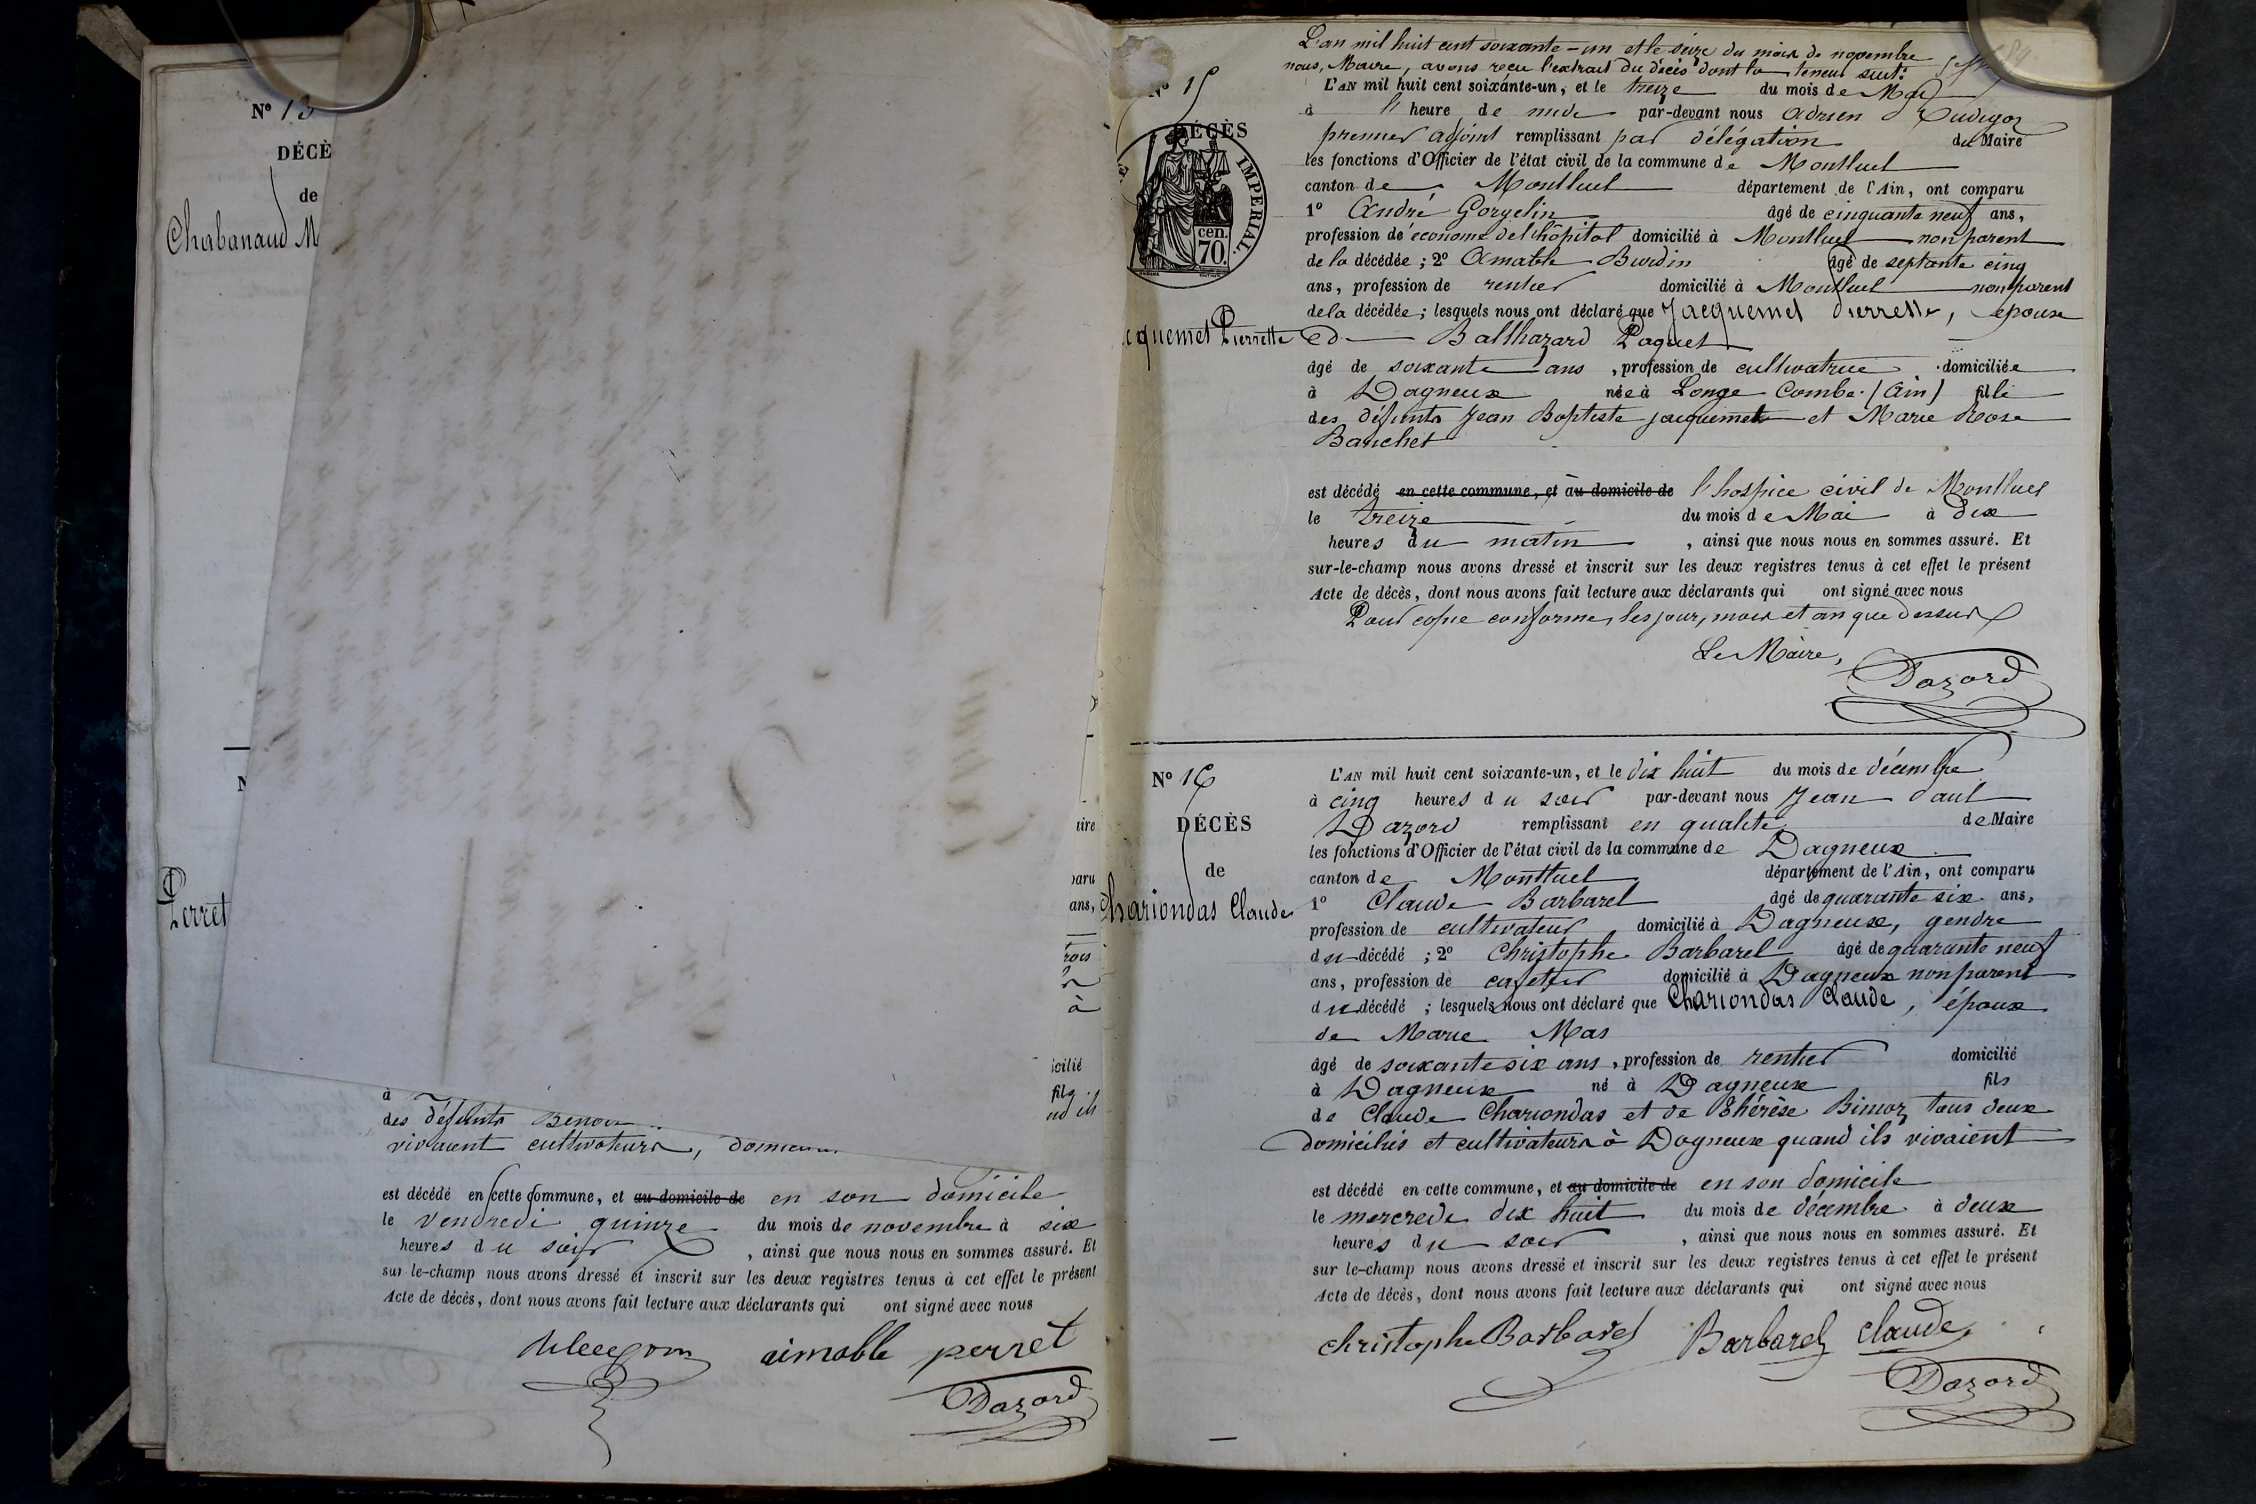 N° 13
DÉCÈ
de
Chabanaud M
N
Perret
ire
paru
ans,
trois
à
icilié
fils
ud ils
à
des défunts Benoi
vivaient cultivateurs,
est décédé en cette commune, et au domicile de en son domicile
le vendredi quinze du mois de novembre à six
heures du soir, ainsi que nous nous en sommes assuré. Et
sur-le-champ nous avons dressé et inscrit sur les deux registres tenus à cet effet le présent
Acte de décès, dont nous avons fait lecture aux déclarants qui ont signé avec nous
aimable perret
Dazord
L'an mil huit cent soixante-un et le seize du mois de novembre
nous, Maire, avons reçu l'extrait du décès dont la teneur suit:
N° 15
DÉCÈS
IMPERIAL.
cen.
70.
cquemet Pierrette
L'AN mil huit cent soixante-un, et le treize du mois de Mai
à l' heure de midi par-devant nous Adrien
premier adjoint remplissant par délégation du Maire
les fonctions d'Officier de l'état civil de la commune de Montluel
canton de Montluel département de l'Ain, ont comparu
1° André Gorgelin âgé de cinquante neuf ans,
profession de économe de l'hôpital domicilié à Montluel non parent
de la décédée ; 2° Amable Burdin âgé de septante cinq
ans, profession de rentier domicilié à Montluel non parent
de la décédée ; lesquels nous ont déclaré que Jacquemet Pierrette, épouse
de Balthazard Paquet
âgé de soixante ans, profession de cultivatrice domiciliée
à Dagneux née à Longe Combe (Ain) fille
des défunts Jean Baptiste jacquemet et Marie Rose
Banchet
est décédé en cette commune, et au domicile de l'hospice civil de Montluel
le treize du mois de Mai à dix
heures du matin, ainsi que nous nous en sommes assuré. Et
sur-le-champ nous avons dressé et inscrit sur les deux registres tenus à cet effet le présent
Acte de décès, dont nous avons fait lecture aux déclarants qui ont signé avec nous
Pour copie conforme, les jour, mois et an que dessus
Le Maire,
Dazord
N° 16
DÉCÈS
de
Chariondas Claude
L'AN mil huit cent soixante-un, et le dix huit du mois de décembre
à cinq heures du soir par-devant nous Jean Paul
Dazord remplissant en qualité de Maire
les fonctions d'Officier de l'état civil de la commune de Dagneux
canton de Montluel département de l'Ain, ont comparu
1° Claude Barbarel âgé de quarante six ans,
profession de cultivateur domicilié à Dagneux, gendre
du décédé ; 2° Christophe Barbarel âgé de quarante neuf
ans, profession de cafetier domicilié à Dagneux non parent
du décédé ; lesquels nous ont déclaré que Chariondas Claude, époux
de Marie Mas
âgé de soixante six ans, profession de rentier domicilié
à Dagneux né à Dagneux fils
de Claude Chariondas et de Thérèse Bimoz tous deux
domiciliés et cultivateurs à Dagneux quand ils vivaient
est décédé en cette commune, et au domicile de en son domicile
le mercredi dix huit du mois de décembre à deux
heures du soir, ainsi que nous nous en sommes assuré. Et
sur le-champ nous avons dressé et inscrit sur les deux registres tenus à cet effet le présent
Acte de décès, dont nous avons fait lecture aux déclarants qui ont signé avec nous
christophe Barbarel Barbarel claude
Dazord